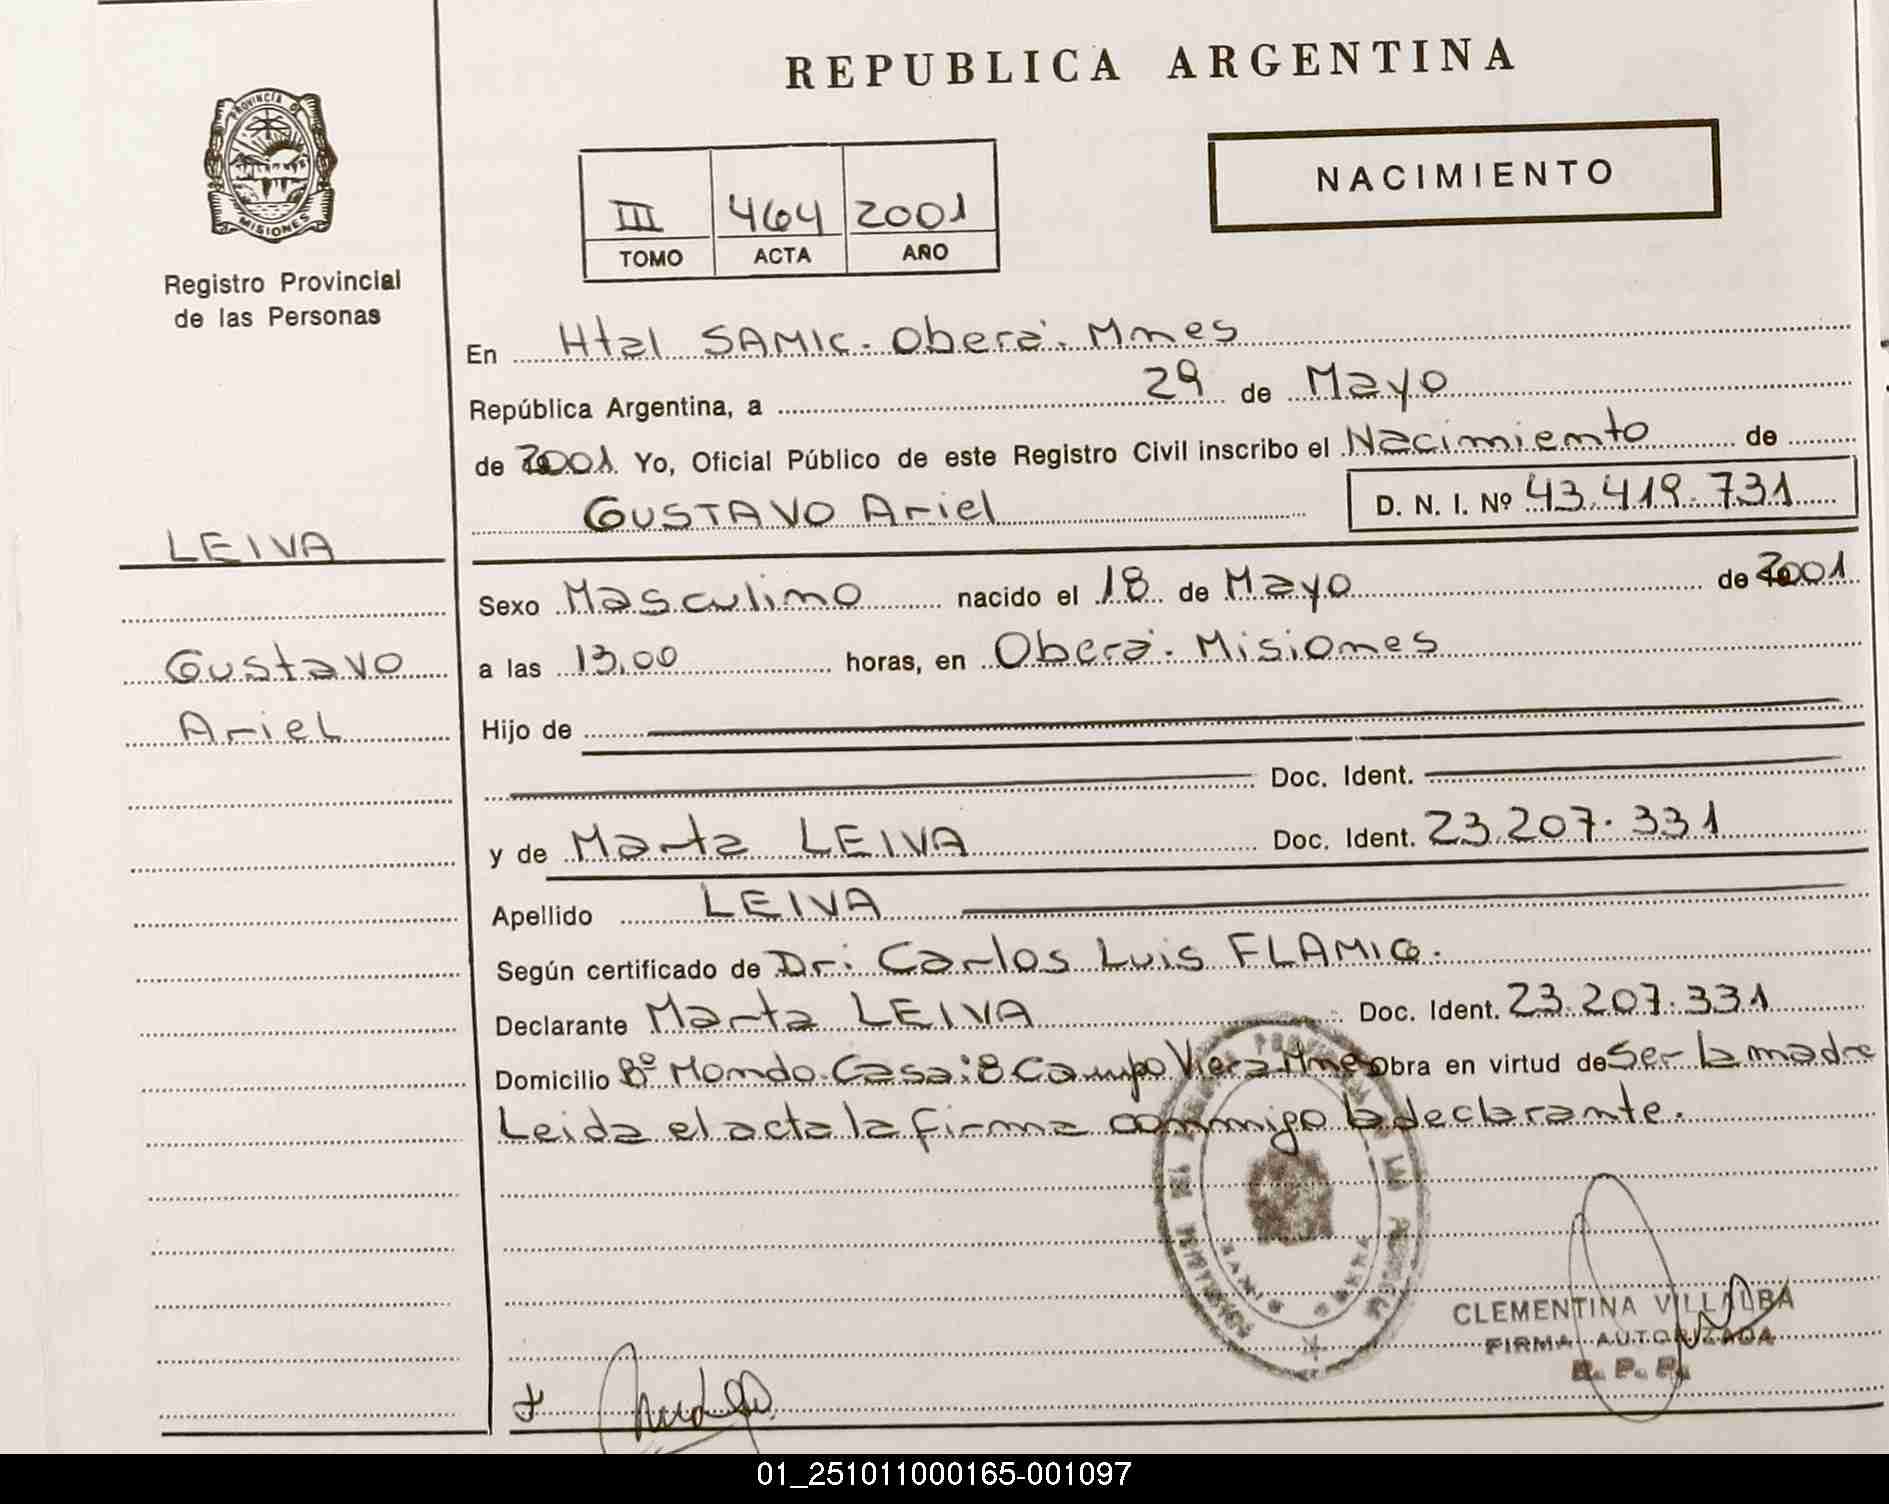 REPUBLICA ARGENTINA
PROVINCIA DE
MISIONES
Registro Provincial
de las Personas
NACIMIENTO
III 464 2001
TOMO ACTA AÑO
En Htal SAMIC. Oberá. Mnes
República Argentina, a 29 de Mayo
de 2001 Yo, Oficial Público de este Registro Civil inscribo el Nacimiento de
GUSTAVO Ariel D. N. I. Nº 43.419.731
LEIVA
Gustavo
Ariel
Sexo Masculino nacido el 18 de Mayo de 2001
a las 13,00 horas, en Oberá. Misiones
Hijo de
Doc. Ident.
y de Marta LEIVA Doc. Ident. 23.207.331
Apellido LEIVA
Según certificado de Dr: Carlos Luis
Declarante Marta LEIVA Doc. Ident. 23.207.331
Domicilio Bº Mondo Casa:8 Campo Viera Mnes Obra en virtud de Ser la madre
Leida el acta la firma conmigo la declarante.
CLEMENTINA VILLALBA
FIRMA AUTORIZADA
R. P. P.
01_251011000165-001097